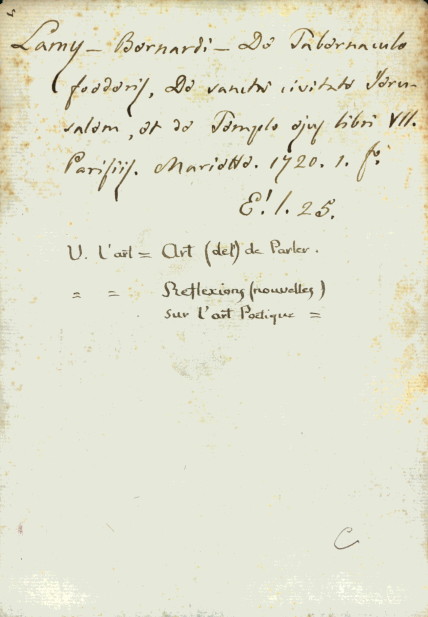 Lamy - Bernardi - De Tabernaculo
foederis, De sancta civitate Jeru-
salem, et de Templo ejus libri VII.
Parisiis. Mariette. 1720. 1. fº.
E! l. 25.
V. l'art = Art (del') de Parler.
" = Reflexions (nouvelles)
sur l'art Poetique =
C